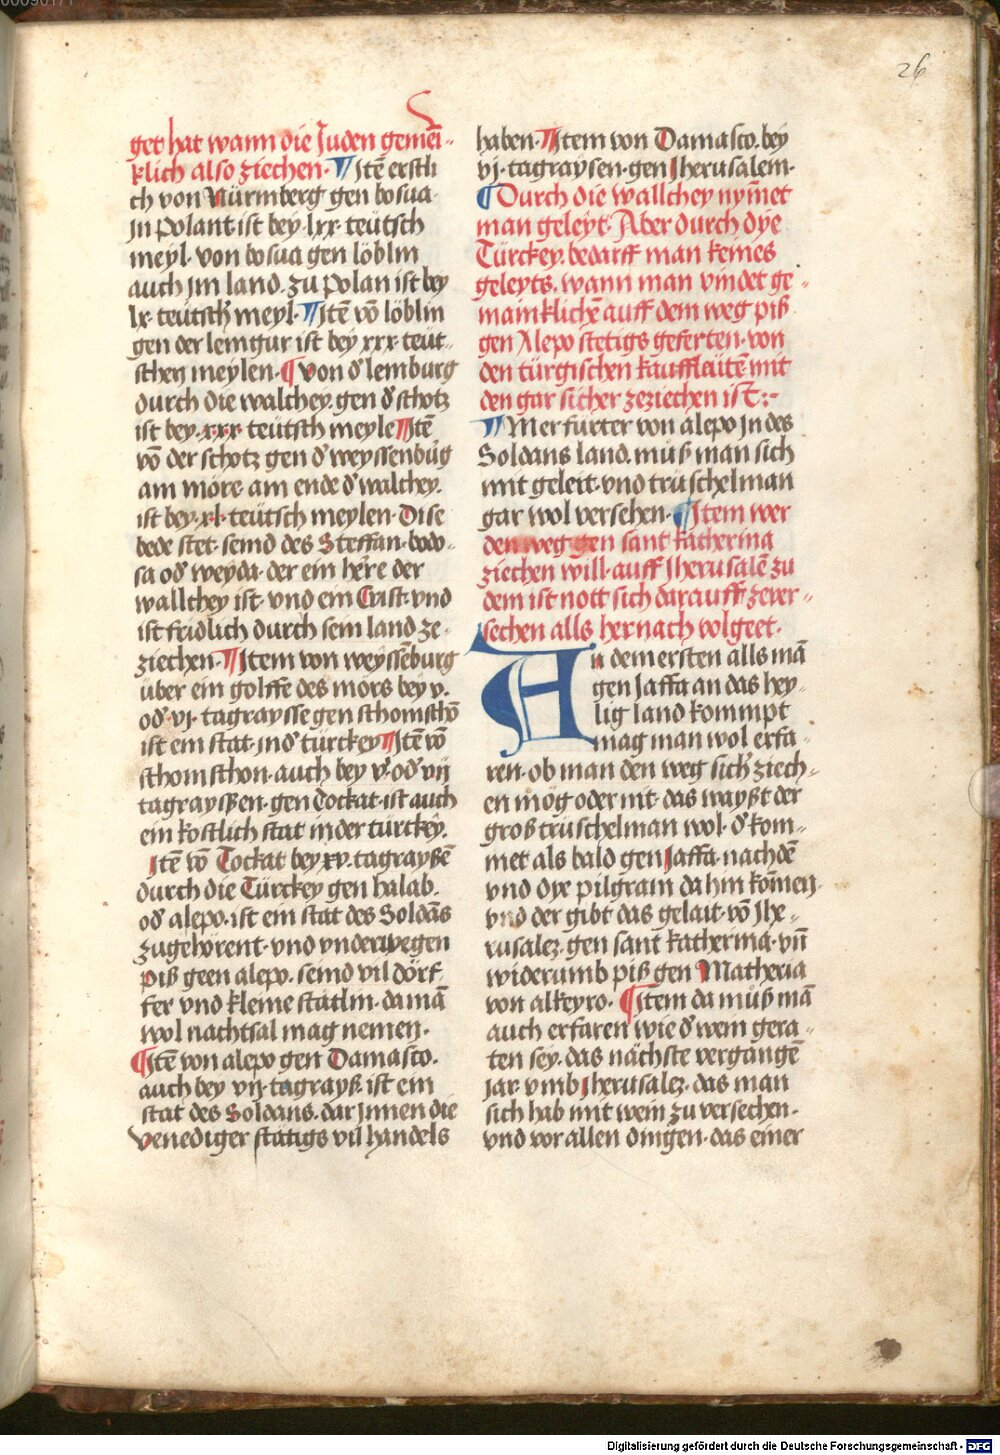 26
get hat wann die Juden gemei-
klich also ziechen. ¶ Jtē erstli
ch von Nürmberg gen bosua
jn Polant ist bey lxx teütsch
meyl. von bosua gen löblin
auch jm land zu Polan ist bey
lx teütsch meyl. ¶ Jtē vō löblin
gen der lemgur ist bey xxx teüt-
schen meylen. ¶ von d' lemburg
durch die walchey. gen d' schotz
ist bey xxx teütsch meyle ¶ Jtē
vō der schotz gen d' weyssenbürg
am möre am ende d' walchey.
ist bey xl teütsch meylen. Dise
bede stet seind des Steffan bodo-
sa od' weyda. der ein herre der
wallchey ist. vnd ein Crist. vnd
ist fridlich durch sein land ze-
ziechen. ¶ Jtem von weyssēburg
über ein golffe des mörs bey v.
od' vj tagraysse gen schomschō
ist ein stat in d' türckey ¶ Jtē vō
schomschon. auch bey v. od' vij
tagrayssen. gen Tockat. ist auch
ein kostlich stat in der türckey.
Jtē vō Tockat bey xv. tagraysē
durch die Türckey gen halab.
od' alepo. ist ein stat des Soldās
zugehörent. vnd vnderwegen
piß geen alepo. seind vil dörf
fer vnd kleine stätlin. da mā
wol nachtsal mag nemen.
¶ Jtē von alepo gen Damasco.
auch bey vij tagrayß. ist ein
stat des Soldans. dar jnnen die
venediger stätigs vil handels
haben. ¶ Jtem von Damasco. bey
vj. tagraysen. gen Jherusalem.
¶ Durch die wallchey nymet
man geleyt. Aber durch dye
Türckey. bedarff man keines
geleyts. wann man vindet ge-
mainklichē auff dem weg piß
gen Alepo stetigs geferten. von
den türgischen kauffleütē. mit
den gar sicher zeziechen ist:-
¶ Mer fürter von alepo jn des
Soldans land. müß man sich
mit geleit. vnd trüschelman
gar wol versehen. ¶ Jtem wer
den weg gen sant katherina
ziechen will. auff Jherusalē zu
dem ist nott sich darauff zever-
sechen alls hernach volgeet.
An dem ersten alls mā
gen Jaffa an das hey-
lig land kommpt
mag man wol erfa-
ren. ob man den weg sich' ziech-
en mög oder nit. das wayßt der
groß trüschelman wol. d' kom-
met als bald gen Jaffa. nach dē
vnd dye pilgrain da hin kōmen.
vnd der gibt das gelait. vō Jhe-
rusalez. gen sant katherina. vn̄
widerumb piß gen Matheria
von alkeyro. ¶ Jtem da müß mā
auch erfaren wie d' wein gera-
ten sey. das nächste vergangē
jar. vmb Jherusalez. das man
sich hab mit wein zu versechen.
vnd vor allen dingen. das einer
Digitalisierung gefördert durch die Deutsche Forschungsgemeinschaft - DFG